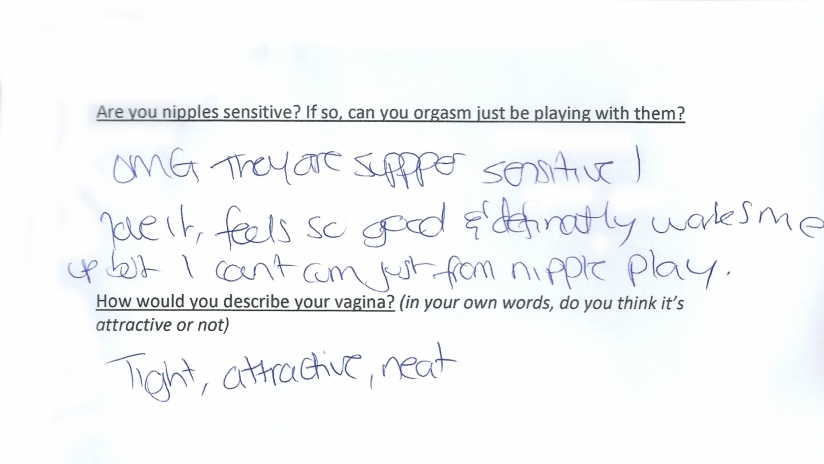 Are you nipples sensitive? If so, can you orgasm just be playing with them?
OMG They are suppper sensitive I
love it, feels so good & definatly wakes me
up but I cant cum just from nipple play.
How would you describe your vagina? (in your own words, do you think it's
attractive or not)
Tight, attractive, neat